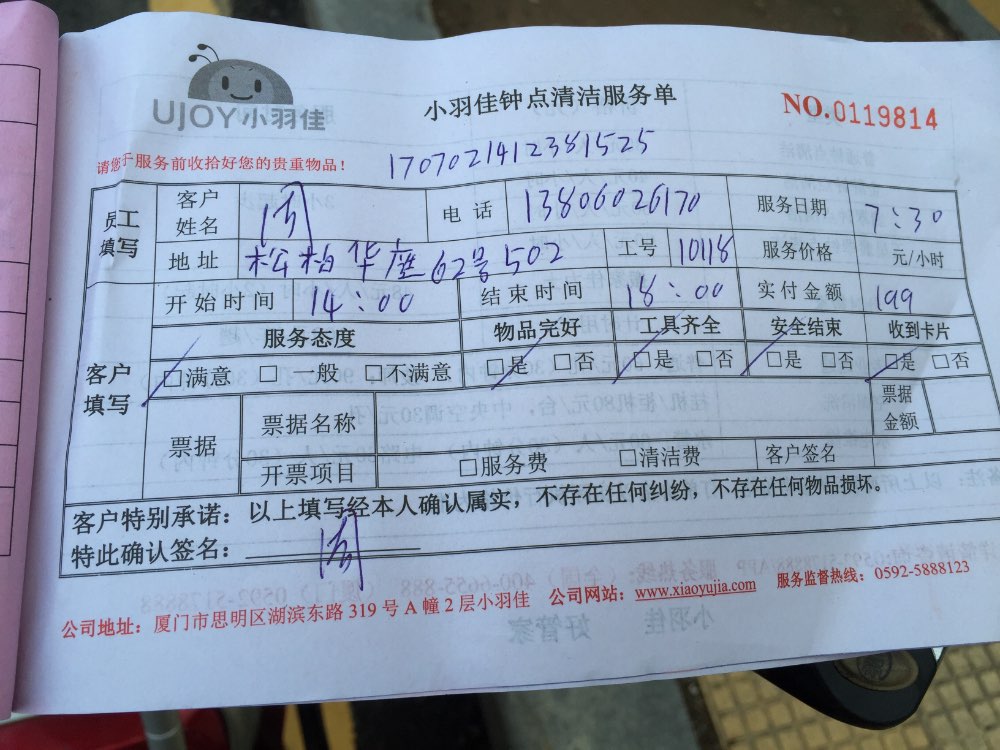 UJOY小羽佳
小羽佳钟点清洁服务单
NO.0119814
请您于服务前收拾好您的贵重物品！
1707021412381525
员工填写 客户姓名 周 电话 13806026170 服务日期 7:30
地址 松柏华庭62号502 工号 10118 服务价格 元/小时
客户填写 开始时间 14:00 结束时间 18:00 实付金额 199
服务态度 物品完好 工具齐全 安全结束 收到卡片
□满意 □一般 □不满意 □是 □否 □是 □否 □是 □否 □是 □否
票据 票据名称 票据金额
开票项目 □服务费 □清洁费 客户签名
客户特别承诺：以上填写经本人确认属实，不存在任何纠纷，不存在任何物品损坏。
特此确认签名： 周
公司地址：厦门市思明区湖滨东路319号A幢2层小羽佳 公司网站：www.xiaoyujia.com 服务监督热线：0592-5888123